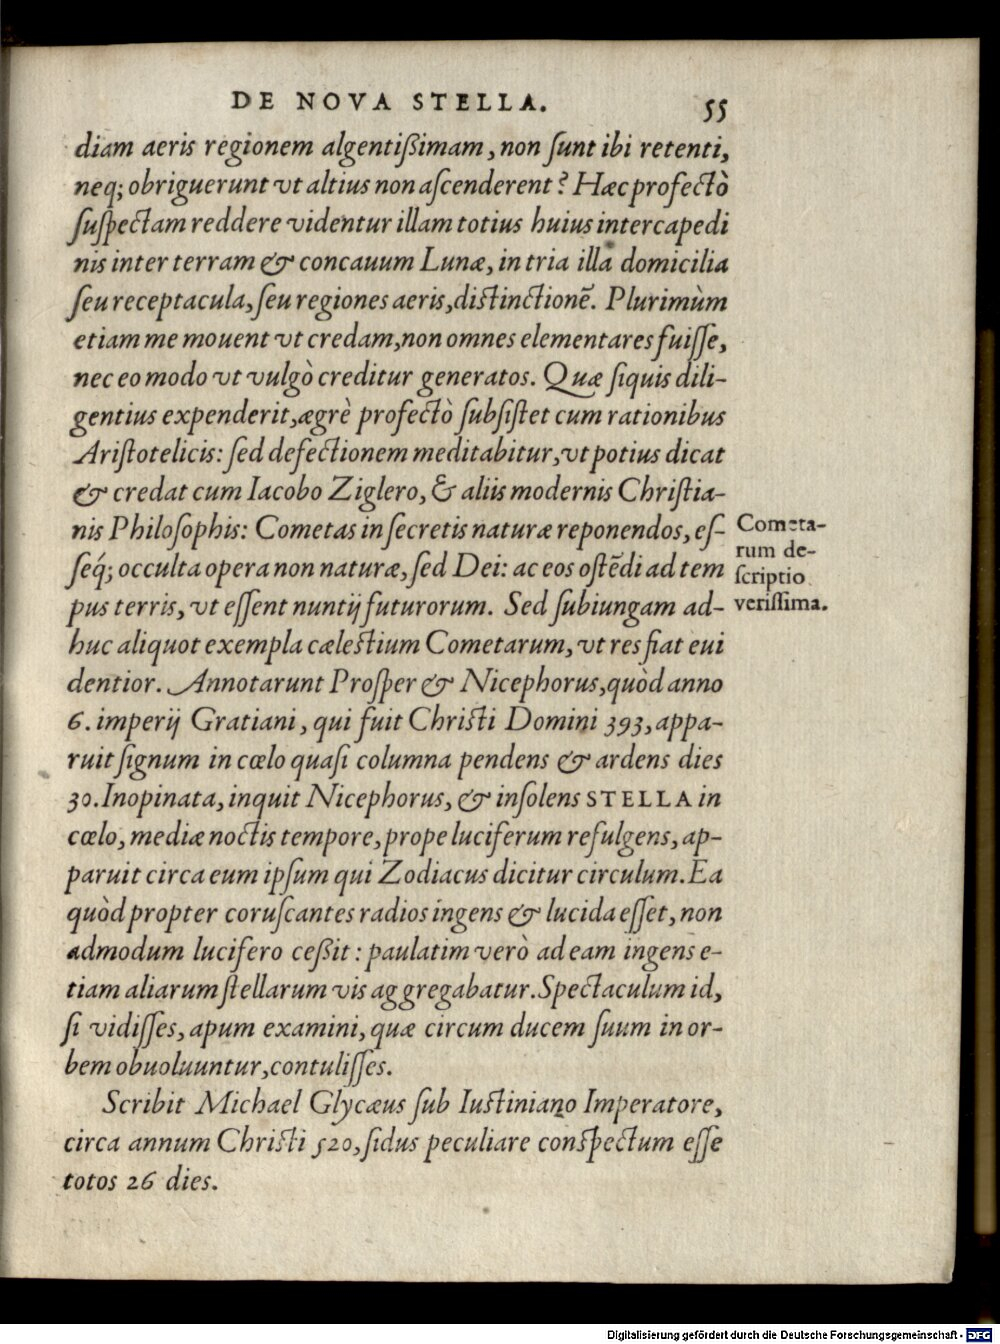 DE NOVA STELLA. 55
diam aeris regionem algentißimam, non ſunt ibi retenti,
neq; obriguerunt vt altius non aſcenderent? Hæc profectò
ſuſpectam reddere videntur illam totius huius intercapedi
nis inter terram & concauum Lunæ, in tria illa domicilia
ſeu receptacula, ſeu regiones aeris, diſtinctionē. Plurimùm
etiam me mouent vt credam, non omnes elementares fuiſſe,
nec eo modo vt vulgò creditur generatos. Quæ ſiquis dili-
gentius expenderit, ægrè profectò ſubſiſtet cum rationibus
Ariſtotelicis: ſed defectionem meditabitur, vt potius dicat
& credat cum Iacobo Ziglero, & aliis modernis Chriſtia-
nis Philoſophis: Cometas in ſecretis naturæ reponendos, eſ-
ſéq; occulta opera non naturæ, ſed Dei: ac eos oſtēdi ad tem
pus terris, vt eſſent nuntij futurorum. Sed ſubiungam ad-
huc aliquot exempla cæleſtium Cometarum, vt res fiat eui
dentior. Annotarunt Proſper & Nicephorus, quòd anno
6. imperij Gratiani, qui fuit Chriſti Domini 393, appa-
ruit ſignum in cœlo quaſi columna pendens & ardens dies
30. Inopinata, inquit Nicephorus, & inſolens STELLA in
cœlo, mediæ noctis tempore, prope luciferum refulgens, ap-
paruit circa eum ipſum qui Zodiacus dicitur circulum. Ea
quòd propter coruſcantes radios ingens & lucida eſſet, non
admodum lucifero ceßit: paulatim verò ad eam ingens e-
tiam aliarum ſtellarum vis aggregabatur. Spectaculum id,
ſi vidiſſes, apum examini, quæ circum ducem ſuum in or-
bem obuoluuntur, contuliſſes.
Scribit Michael Glycæus ſub Iuſtiniano Imperatore,
circa annum Chriſti 520, ſidus peculiare conſpectum eſſe
totos 26 dies.
Cometa-
rum de-
ſcriptio
veriſſima.
Digitalisierung gefördert durch die Deutsche Forschungsgemeinschaft - DFG